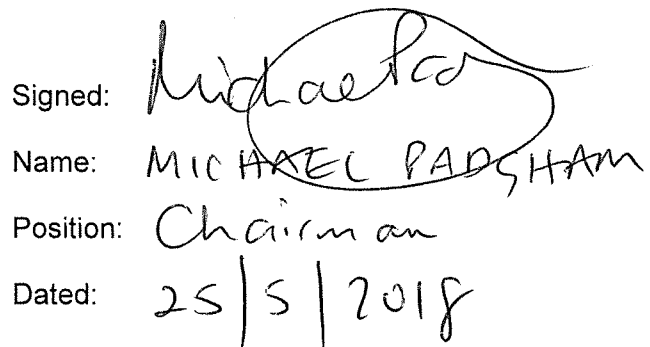 Signed: Michael Pad
Name: MICHAEL PADSHAM
Position: Chairman
Dated: 25/5/2018